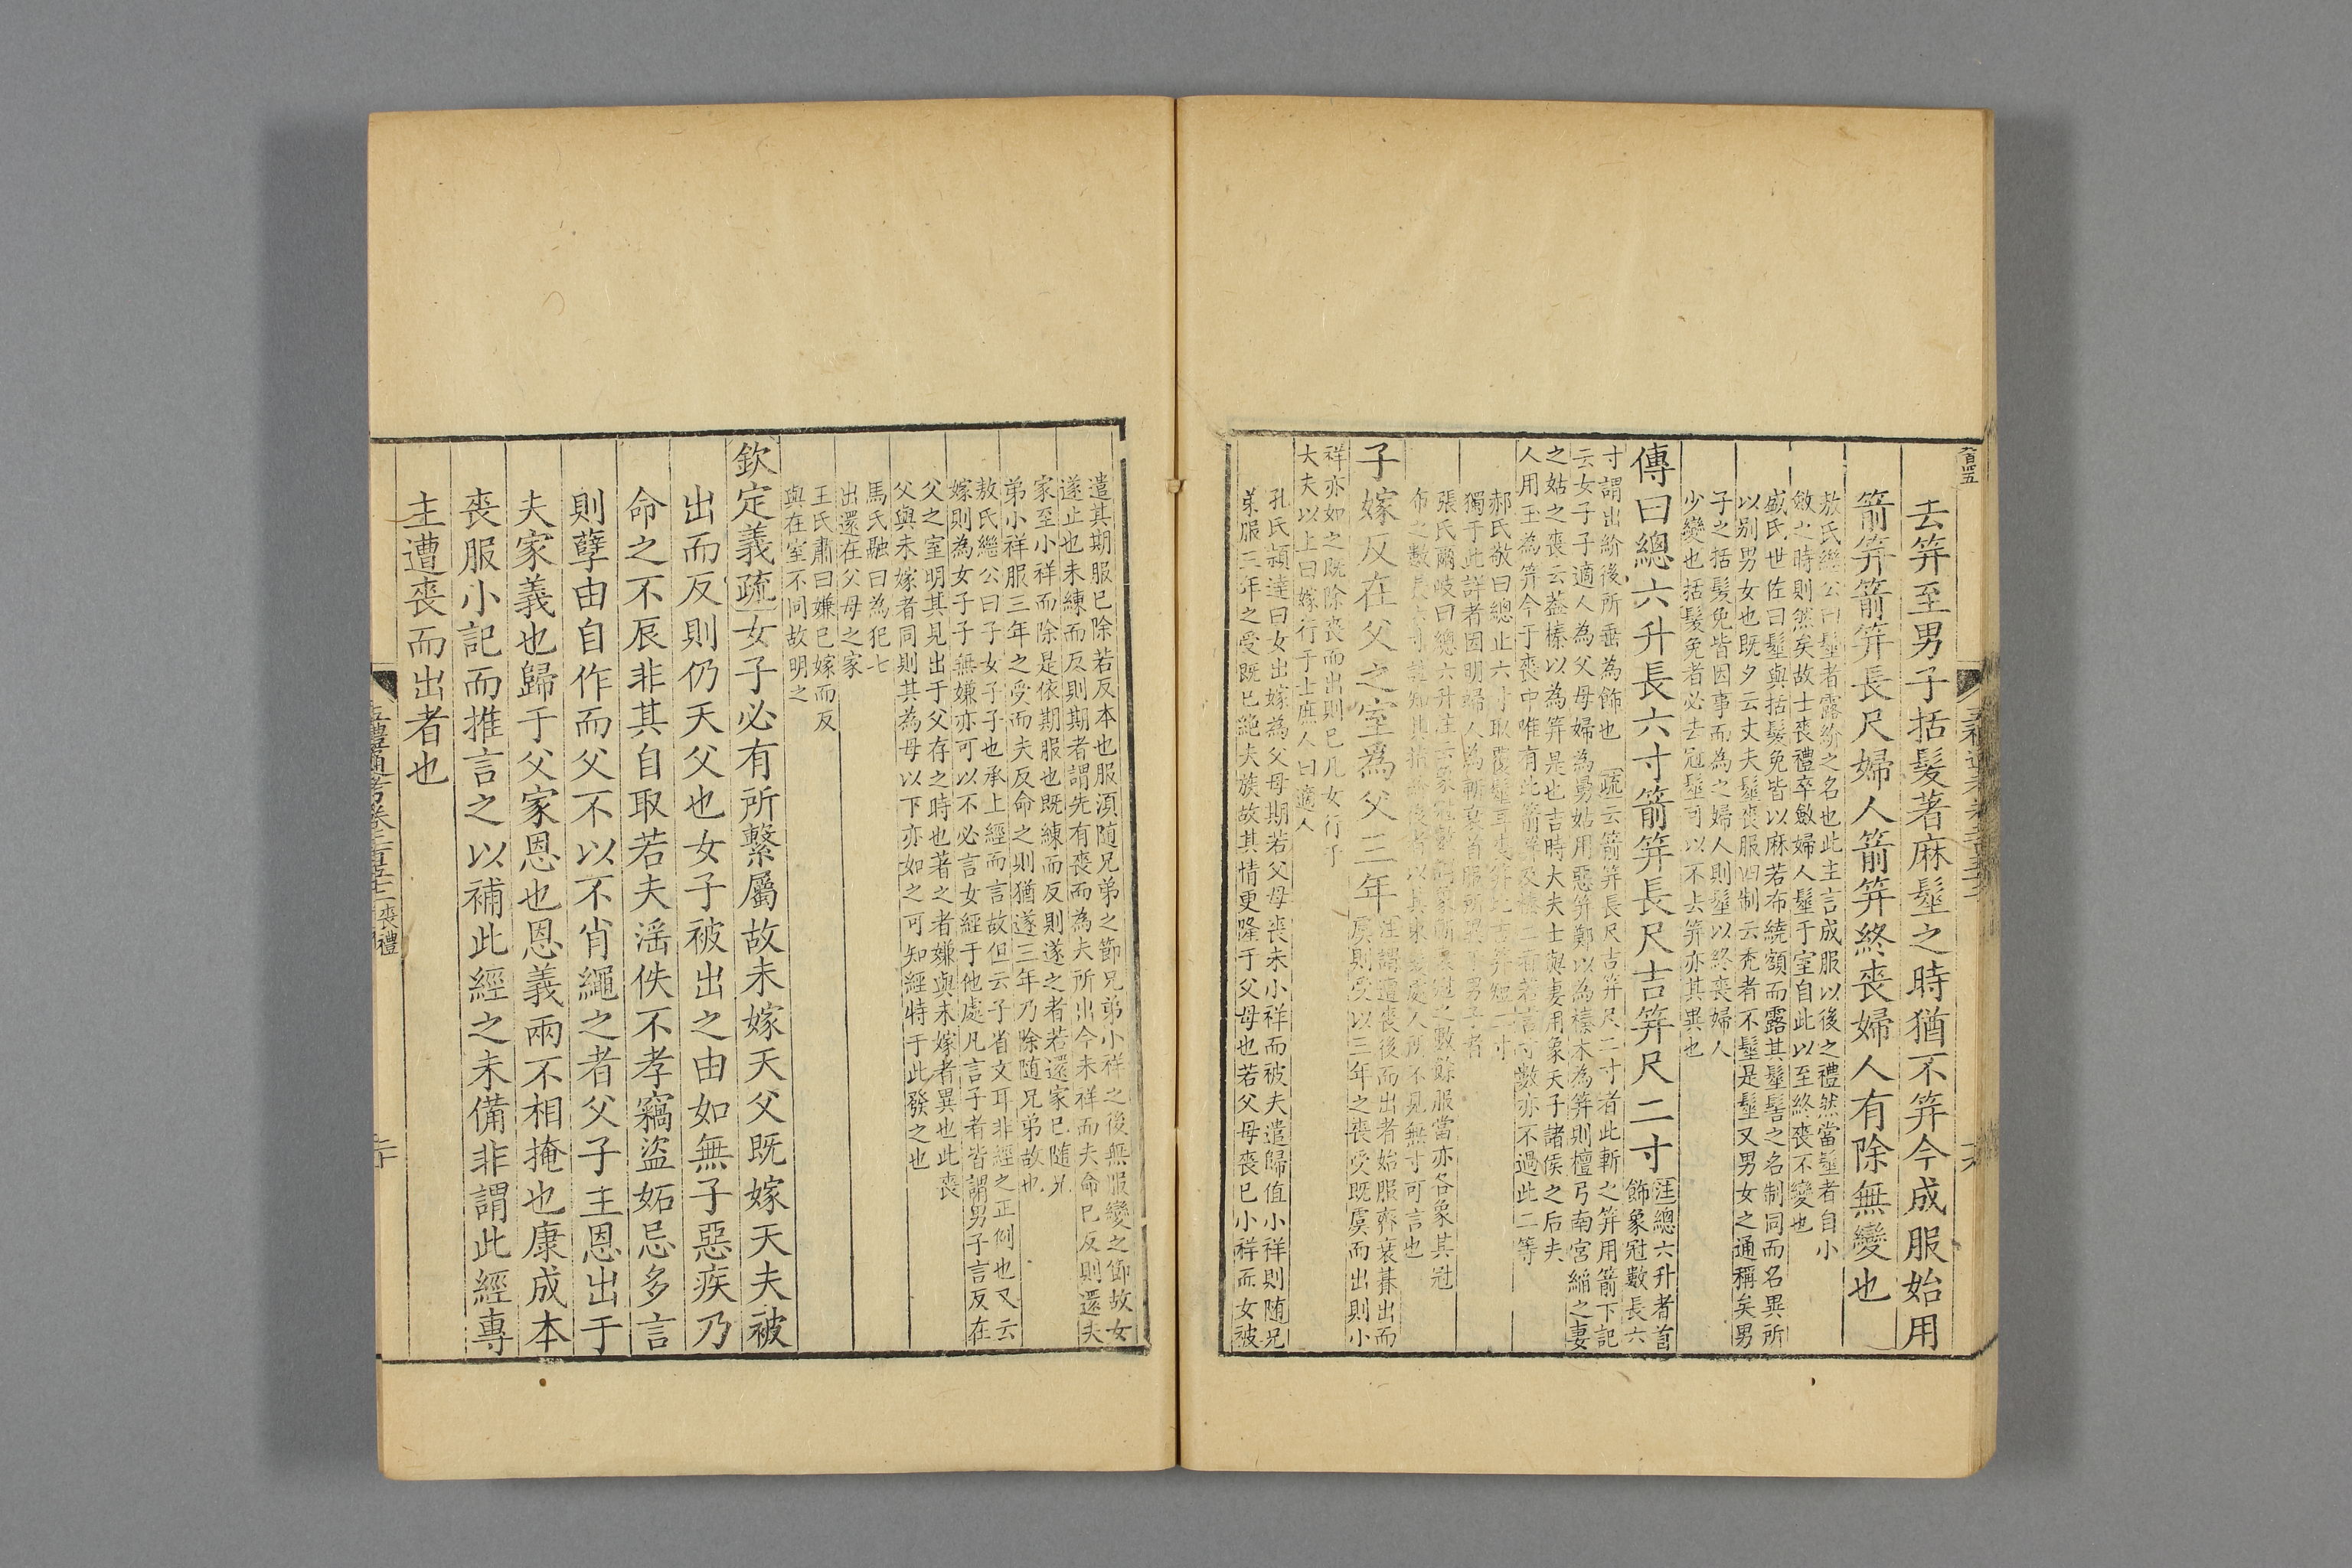 去笄至男子括髮著麻髽之時猶不笄今成服始用
箭笄箭笄長尺婦人箭笄終喪婦人有除無變也
敖氏繼公曰髽者露紒之名也此主言成服以後之禮然當髽者自小
斂之時則然矣故士喪禮卒斂婦人髽于室自此以至終喪不變也
盛氏世佐曰髽與括髮免皆以麻若布繞額而露其髽髻之名制同而名異所
以别男女也既夕云丈夫髽喪服四制云秃者不髽是髽又男女之通稱矣男
子之括髮免皆因事而為之婦人則髽以終喪婦人
少變也括髮免者必去冠髽可以不去笄亦其異也
傳曰總六升長六寸箭笄長尺吉笄尺二寸
注總六升者首
飾象冠數長六
寸謂出紒後所垂為飾也 疏云箭笄長尺吉笄尺二寸者此斬之笄用箭下記
云女子子適人為父母婦為舅姑用惡笄鄭以為榛木為笄則檀弓南宮縚之妻
之姑之喪云葢榛以為笄是也吉時大夫士與妻用象天子諸侯之后夫
人用玉為笄今于喪中唯有此箭笄及榛二者若言寸數亦不過此二等
郝氏敬曰總止六寸取覆髽耳喪笄比吉笄短二寸
獨于此詳者因明婦人為斬衰首服所異于男子者
張氏爾岐曰總六升注云象冠數謂象斬衰冠之數餘服當亦各象其冠
布之數長六寸謂紒後者以其束髮處人所不見無寸可言也
子嫁反在父之室為父三年
注謂遭喪後而出者始服齊衰朞出而
虞則受以三年之喪受既虞而出則小
祥亦如之既除喪而出則已凡女行于
大夫以上曰嫁行于士庶人曰適人
孔氏穎達曰女出嫁為父母期若父母喪未小祥而被夫遣歸值小祥則随兄
弟服三年之受既已絶夫族故其情更隆于父母也若父母喪已小祥而女被
遣其期服已除若反本也服須随兄弟之節兄弟小祥之後無服變之節故女
遂止也未練而反則期者謂先有喪而為夫所出今未祥而夫命已反則還夫
家至小祥而除是依期服也既練而反則遂之者若還家已随兄
弟小祥服三年之受而夫反命之則猶遂三年乃除随兄弟故也
敖氏繼公曰子女子子也承上經而言故但云子省文耳非經之正例也又云
嫁則為女子子無嫌亦可以不必言女經于他處凡言子者皆謂男子言反在
父之室明其見出于父存之時也著之者嫌與未嫁者異也此喪
父與未嫁者同則其為母以下亦如之可知經特于此發之也
馬氏融曰為犯七
出還在父母之家
王氏肅曰嫌已嫁而反
與在室不同故明之
欽定義疏女子必有所繫屬故未嫁天父既嫁天夫被
出而反則仍天父也女子被出之由如無子惡疾乃
命之不辰非其自取若夫淫佚不孝竊盜妬忌多言
則孽由自作而父不以不肖繩之者父子主恩出于
夫家義也歸于父家恩也恩義兩不相掩也康成本
喪服小記而推言之以補此經之未備非謂此經專
主遭喪而出者也
五禮通考卷二百五十二喪禮
二十